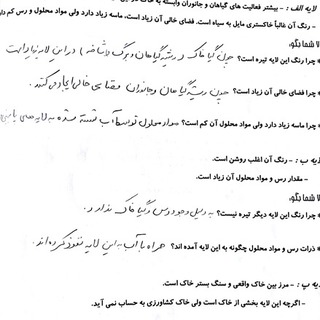 لایه الف : - بیشتر فعالیت های گیاهان و جانوران وابسته به خاک در
فضای خالی آن زیاد است، ماسه زیاد دارد ولی مواد محلول و رس کم دا
- رنگ آن غالبا خاکستری مایل به سیاه است.
لا شما بگو،
چرا رنگ این لایه تیره است؟ چون گیاخاک و ریشه گیاهان و برگ و شاخه در این لایه زیاد است
چرا فضای خالی آن زیاد است؟ چون ریشه گیاهان و جانوران فضای خالی ایجاد می کنند.
چرا ماسه زیاد دارد ولی مواد محلول آن کم است؟ مواد محلول توسط آب شسته شده به لایه های پایین
یه ب : - رنگ آن اغلب روشن است.
- مقدار رس و مواد محلول آن زیاد است.
لا شما بگو،
چرا رنگ این لایه دیگر تیره نیست؟ به دلیل وجود رس و گیاخاک ندارد.
ذرات رس و مواد محلول چگونه به این لایه آمده اند؟ همراه با آب به این لایه نفوذ کرده اند.
یه پ : - مرز بین خاک واقعی و سنگ بستر خاک است.
- اگرچه این لایه بخشی از خاک است ولی خاک کشاورزی به حساب نمی آید.